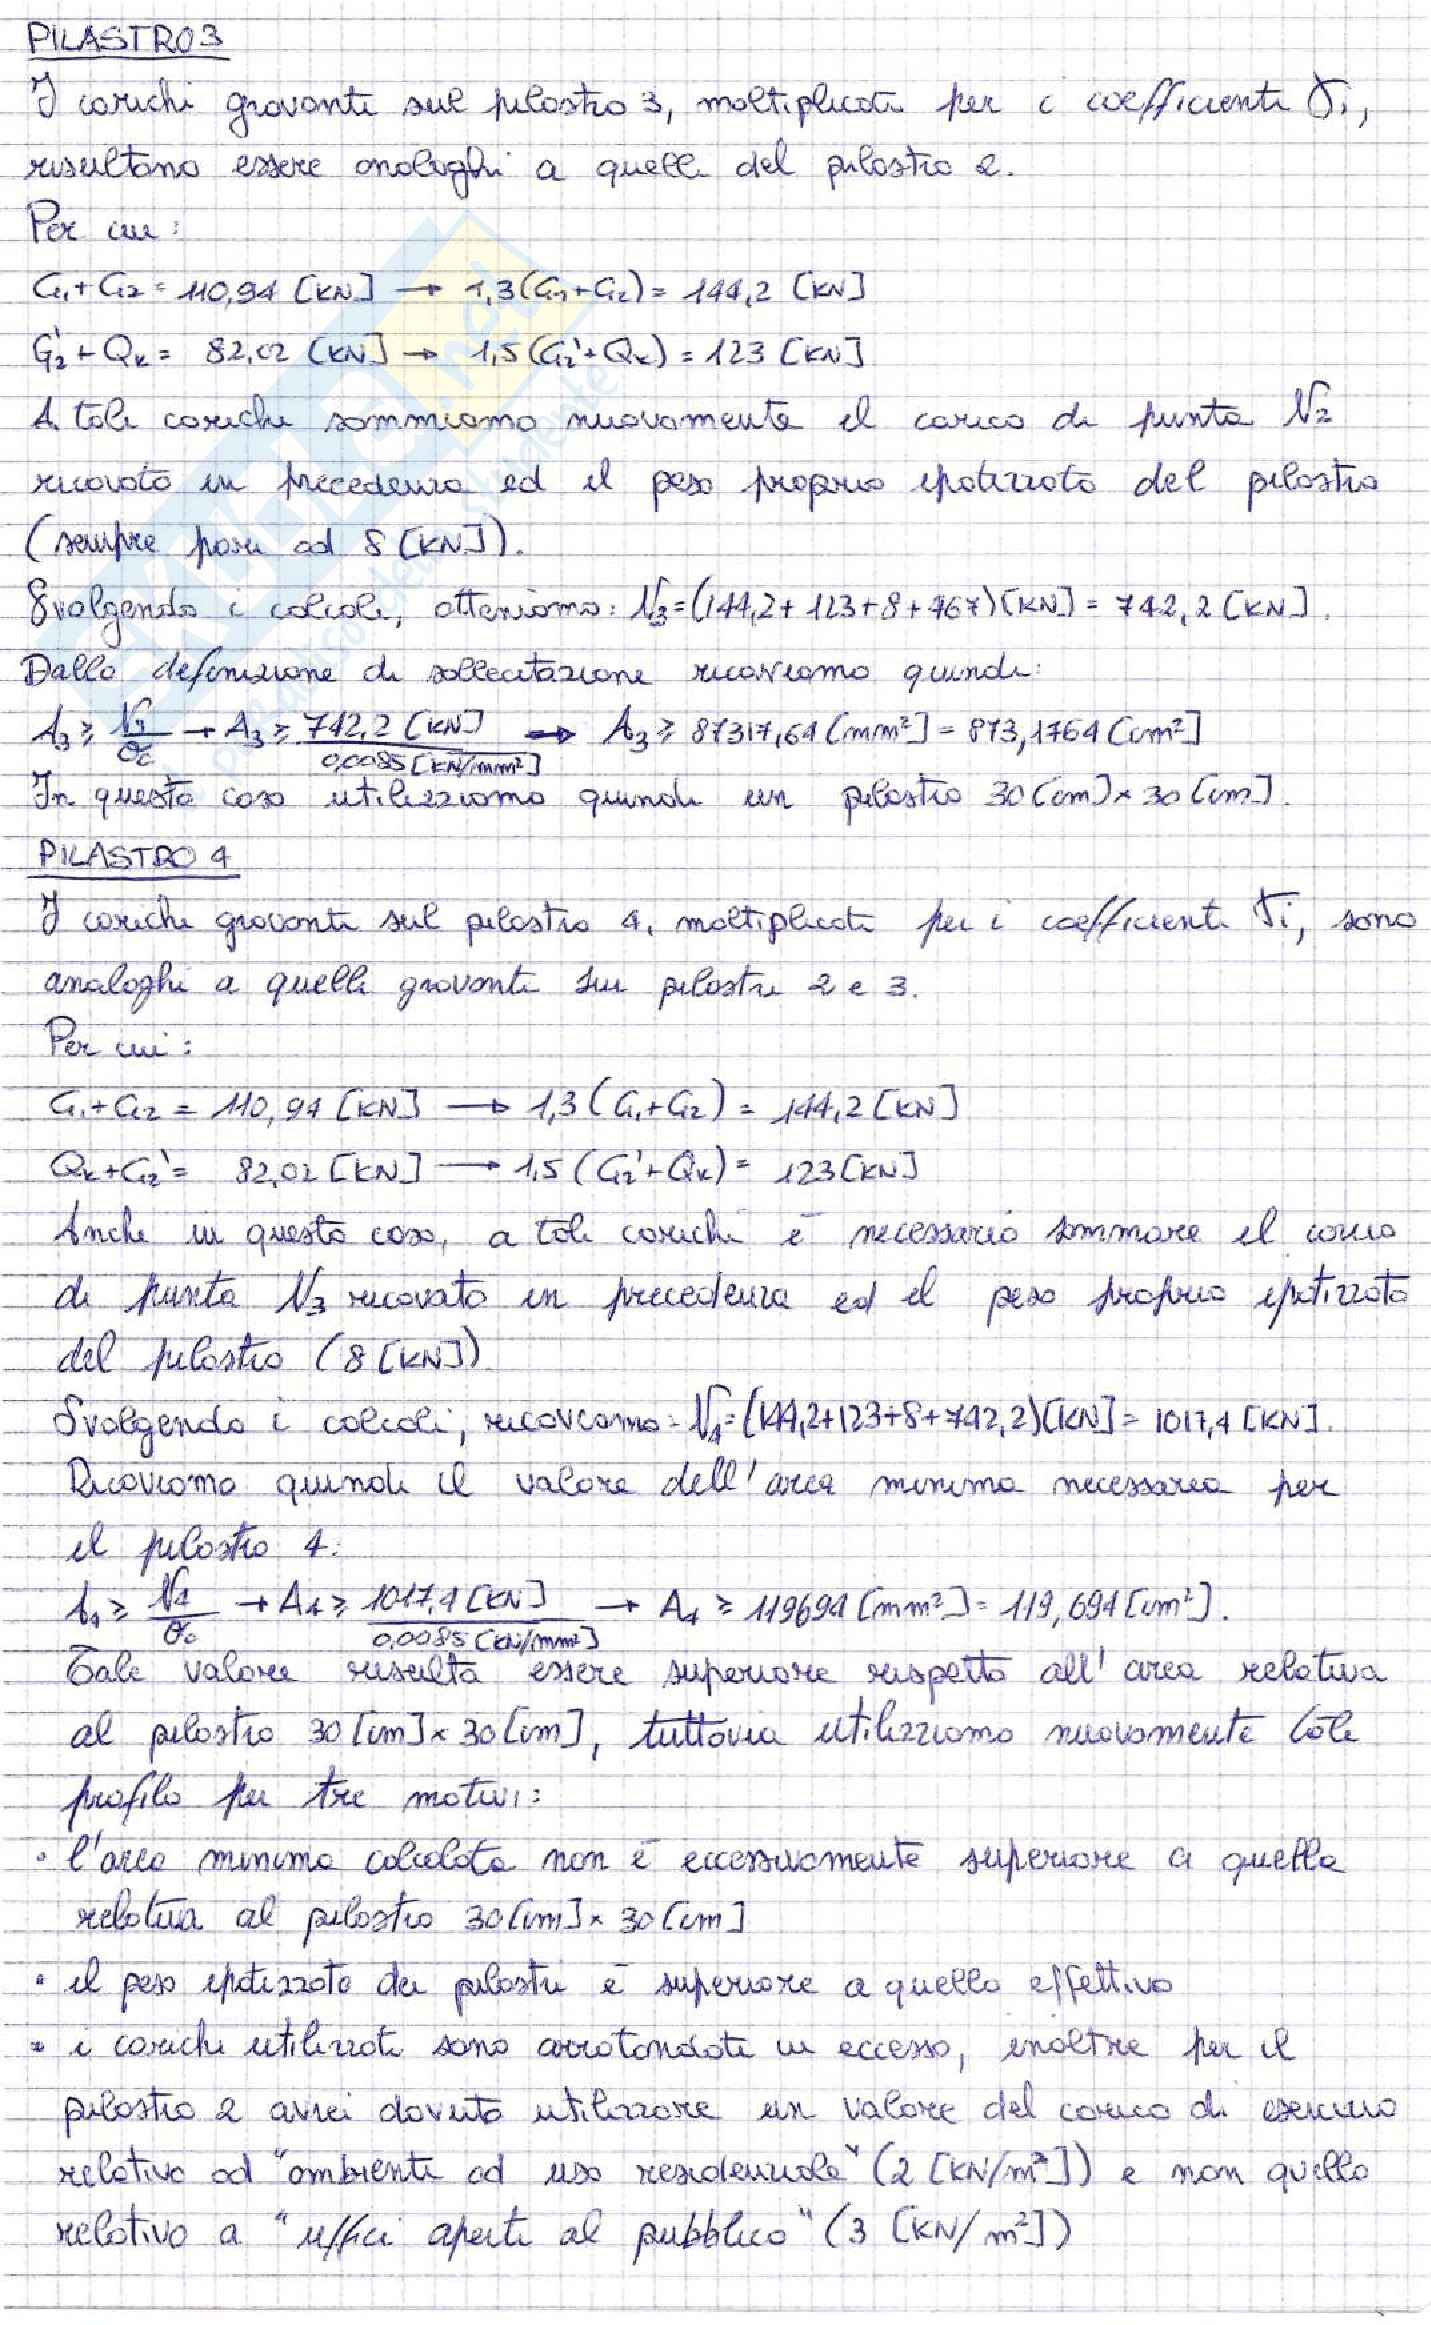 PILASTRO 3
I carichi gravanti sul pilastro 3, moltiplicati per i coefficienti γi,
risultano essere analoghi a quelli del pilastro 2.
Per cui:
G1+G2 = 110,94 [KN] → 1,3(G1+G2) = 144,2 [KN]
G2'+Qk = 82,02 [KN] → 1,5(G2'+Qk) = 123 [KN]
A tali carichi sommiamo nuovamente il carico di punta N2
ricavato in precedenza ed il peso proprio ipotizzato del pilastro
(sempre pari ad 8 [KN]).
Svolgendo i calcoli, otteniamo: N3=(144,2+123+8+467)[KN] = 742,2 [KN].
Dalla definizione di sollecitazione ricaviamo quindi:
A3 ≥ N3/σc → A3 ≥ 742,2 [KN]/0,0085 [KN/mm²] → A3 ≥ 87317,64 [mm²] = 873,1764 [cm²]
In questo caso utilizziamo quindi un pilastro 30 [cm] × 30 [cm].
PILASTRO 4
I carichi gravanti sul pilastro 4, moltiplicati per i coefficienti γi, sono
analoghi a quelli gravanti sui pilastri 2 e 3.
Per cui:
G1+G2 = 110,94 [KN] → 1,3(G1+G2) = 144,2 [KN]
Qk+G2' = 82,02 [KN] → 1,5(G2'+Qk) = 123 [KN]
Anche in questo caso, a tali carichi è necessario sommare il carico
di punta N3 ricavato in precedenza ed il peso proprio ipotizzato
del pilastro (8 [KN])
Svolgendo i calcoli, ricaviamo: N4=(144,2+123+8+742,2)[KN] = 1017,4 [KN].
Ricaviamo quindi il valore dell'area minima necessaria per
il pilastro 4:
A4 ≥ N4/σc → A4 ≥ 1017,4 [KN]/0,0085 [KN/mm²] → A4 ≥ 119694 [mm²] = 119,694 [cm²].
Tale valore risulta essere superiore rispetto all'area relativa
al pilastro 30 [cm] × 30 [cm], tuttavia utilizziamo nuovamente tale
profilo per tre motivi:
• l'area minima calcolata non è eccessivamente superiore a quella
relativa al pilastro 30 [cm] × 30 [cm]
• il peso ipotizzato dei pilastri è superiore a quello effettivo
• i carichi utilizzati sono arrotondati in eccesso, inoltre per il
pilastro 2 avrei dovuto utilizzare un valore del carico di esercizio
relativo ad "ambienti ad uso residenziale" (2 [KN/m²]) e non quello
relativo a "uffici aperti al pubblico" (3 [KN/m²])